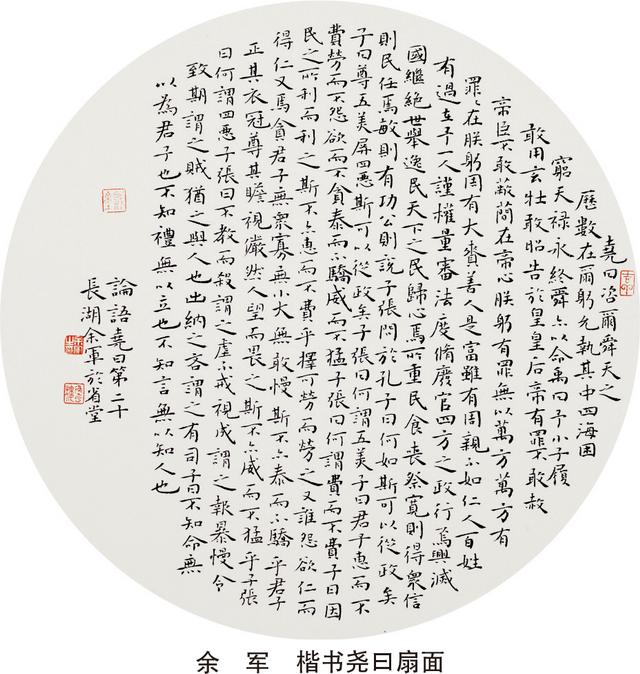 堯曰咨爾舜天之
歷數在爾躬允執其中四海困
窮天禄永終舜亦以命禹曰予小子履
敢用玄牡敢昭告於皇皇后帝有罪不敢赦
帝臣不敢蔽簡在帝心朕躬有罪無以萬方萬方有
罪罪在朕躬周有大賚善人是富雖有周親不如仁人百姓
有過在予一人謹權量審法度脩廢官四方之政行焉興滅
國繼絶世舉逸民天下之民歸心焉所重民食喪祭寬則得衆信
則民任焉敏則有功公則説子張問於孔子曰何如斯可以從政矣
子曰尊五美屏四惡斯可以從政矣子張曰何謂五美子曰君子惠而不
費勞而不怨欲而不貪泰而不驕威而不猛子張曰何謂惠而不費子曰因
民之所利而利之斯不亦惠而不費乎擇可勞而勞之又誰怨欲仁而
得仁又焉貪君子無衆寡無小大無敢慢斯不亦泰而不驕乎君子
正其衣冠尊其瞻視儼然人望而畏之斯不亦威而不猛乎子張
曰何謂四惡子張曰不教而殺謂之虐不戒視成謂之報暴慢令
致期謂之賊猶之與人也出納之吝謂之有司子曰不知命無
以為君子也不知禮無以立也不知言無以知人也
論語堯曰第二十
長湖余軍於省堂
余 军 楷书尧曰扇面